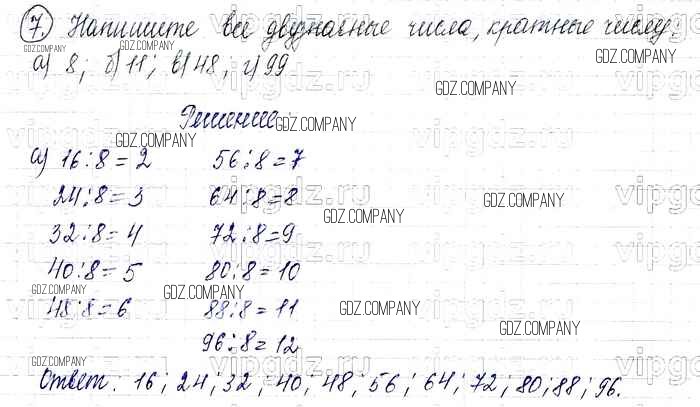 7. Напишите все двузначные числа, кратные числу:
а) 8; б) 11; в) 48, г) 99
Решение:
а) 16:8=2 56:8=7
24:8=3 64:8=8
32:8=4 72:8=9
40:8=5 80:8=10
48:8=6 88:8=11
96:8=12
Ответ: 16; 24; 32; 40; 48; 56; 64; 72; 80; 88; 96.
GDZ.COMPANY
vipgdz.ru